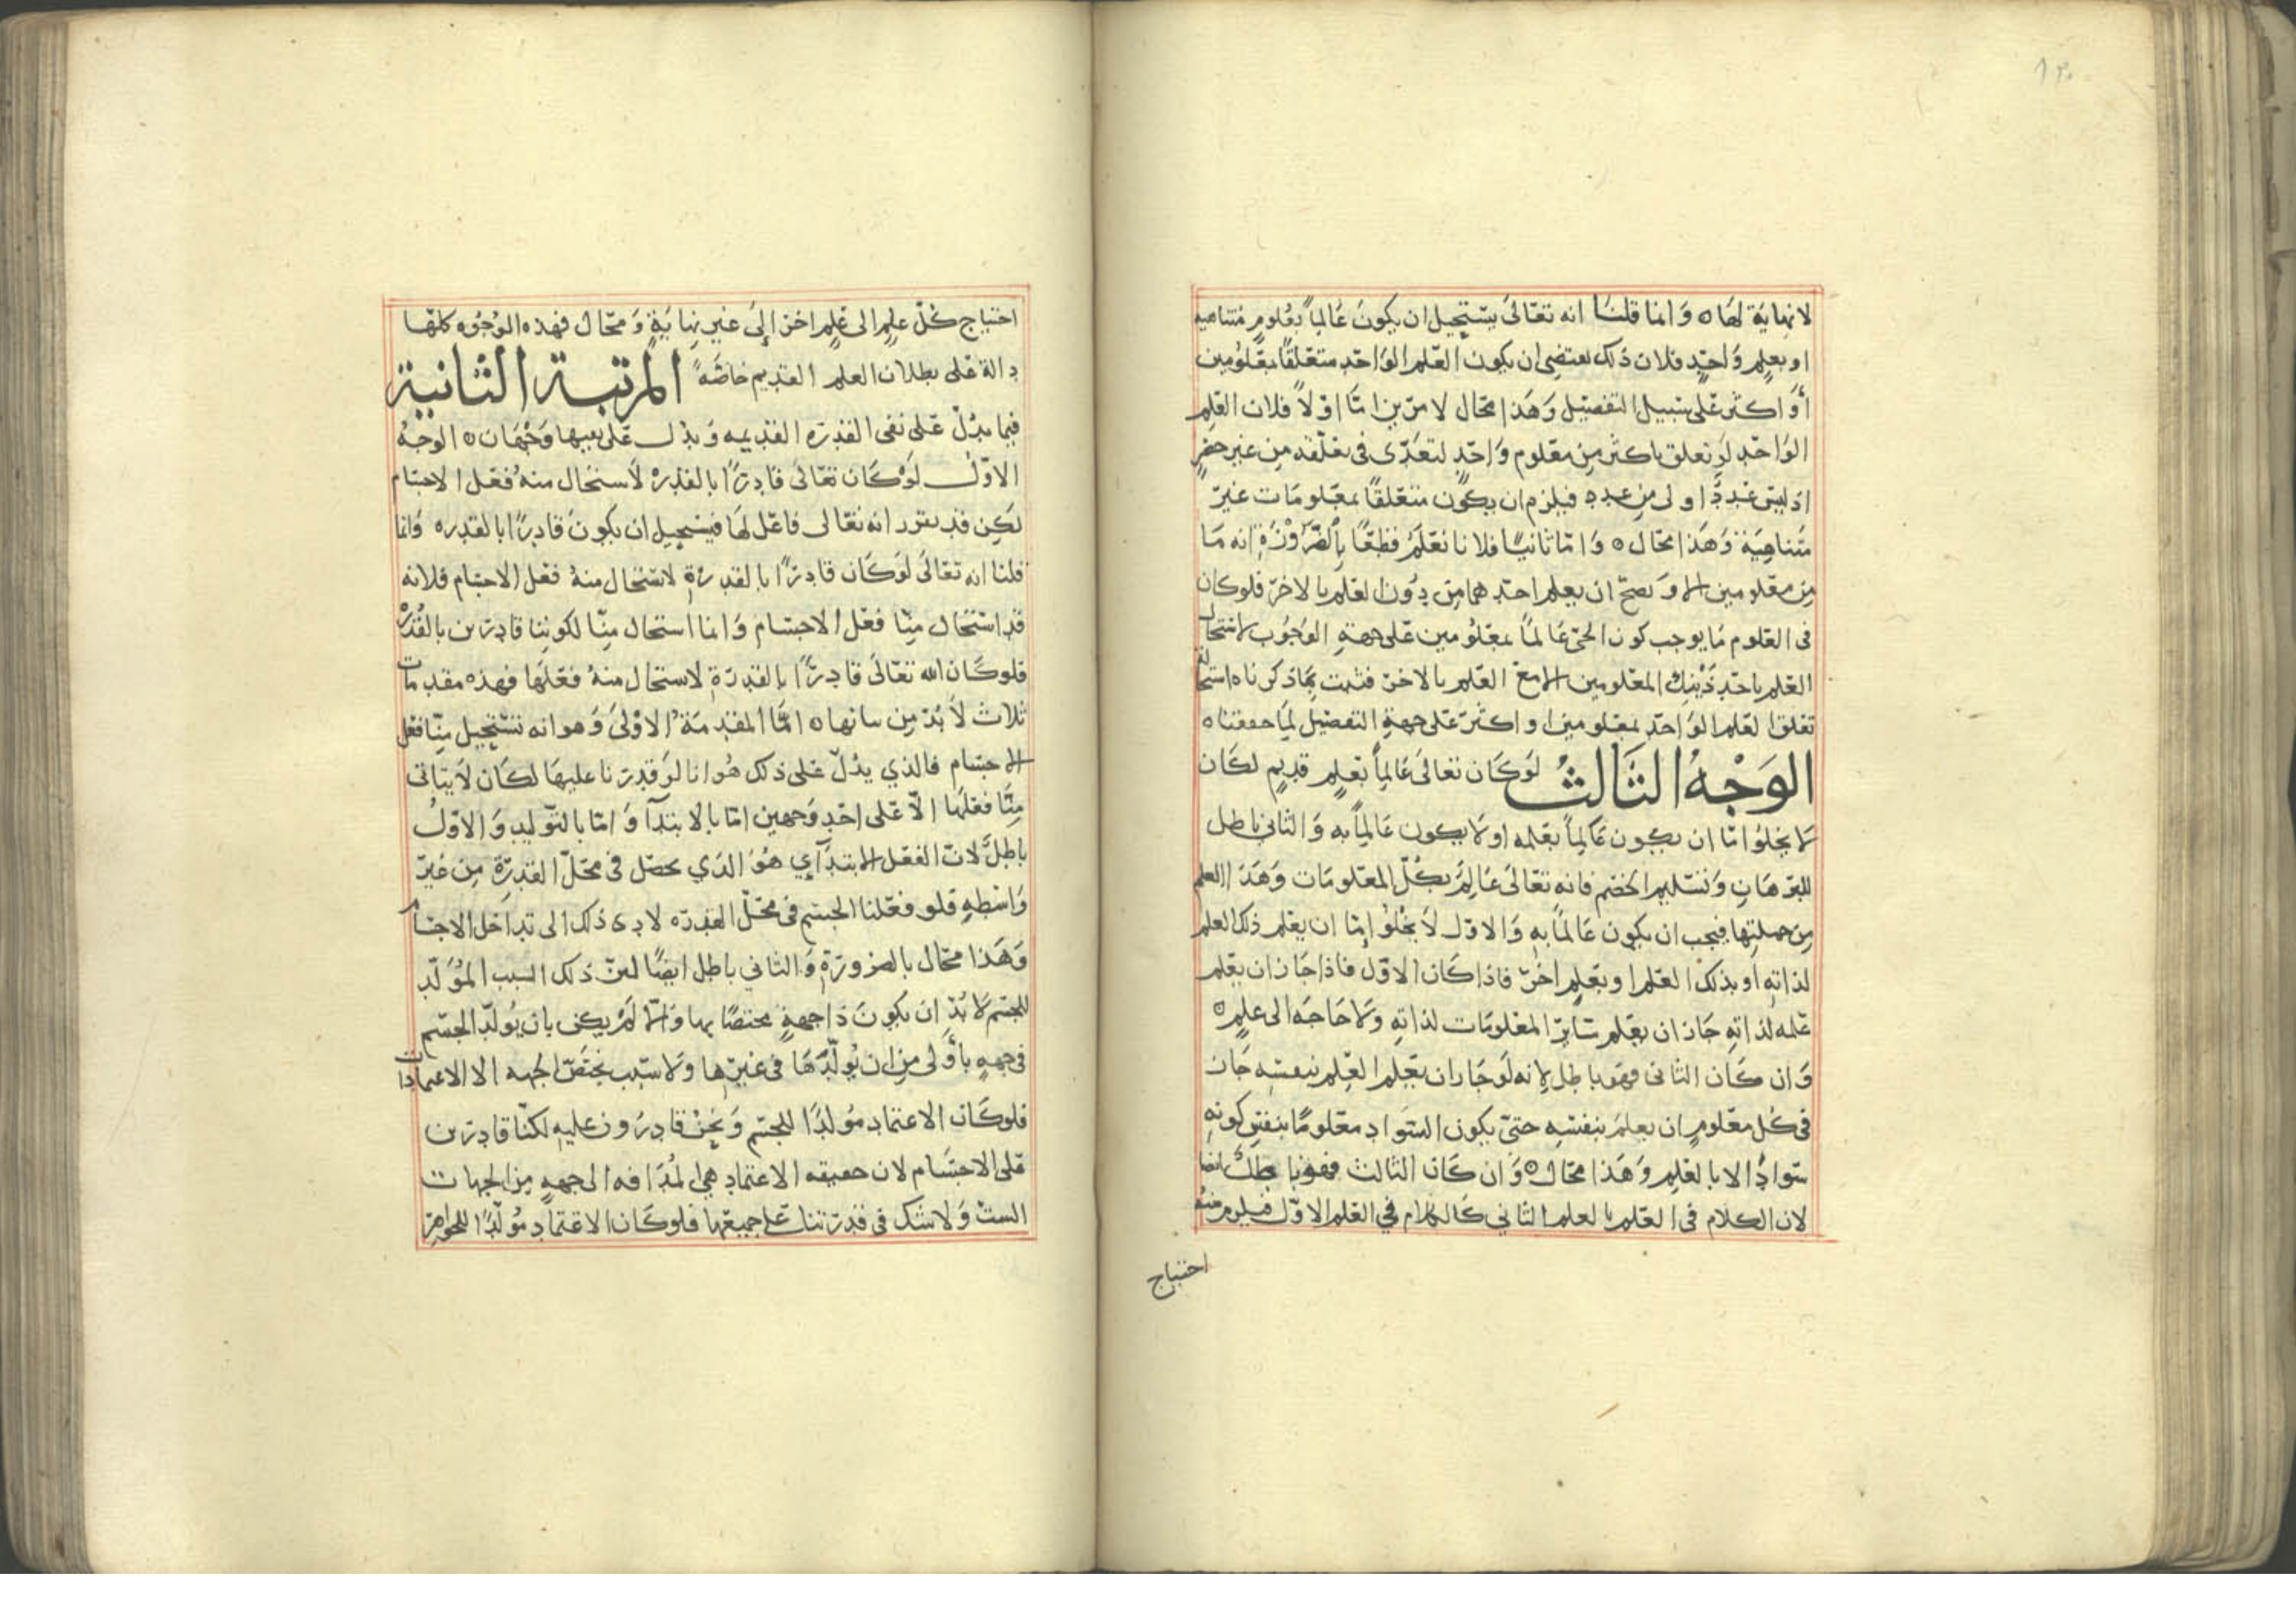 ١٣٠
لا نهاية لها ه وانما قلنا انه تعالى يستحيل ان يكون عالما بعلوم متناهيه
او بعلم واحد فلان ذلك يقتضى ان يكون العلم الواحد متعلقا بمعلومين
أو اكثر على سبيل التفصيل وهذا محال لامرين اما اولا فلان العلم
الواحد لو تعلق باكثر من معلوم واحد لتعدى فى تعلقه من غير حصر
اذ ليس عدد اولى من عدد فيلزم ان يكون متعلقا بمعلومات غير
متناهية وهذا محال ه واما ثانيا فلانا نعلم قطعا بالضرورة انه ما
من معلومين الا ويصح ان يعلم احدهما من دون العلم بالاخر فلو كان
فى العلوم ما يوجب كون الحى عالما بمعلومين على جهة الوجوب لاستحال
العلم باحد ذينك المعلومين الا مع العلم بالاخر فثبت بما ذكرناه استحالة
تعلق العلم الواحد بمعلومين او اكثر على جهة التفصيل لما حققناه
الوجه الثالث لو كان تعالى عالما بعلم قديم لكان
لا يخلوا اما ان يكون عالما بعلمه او لا يكون عالما به والثانى باطل
للبرهان وتسليم الخصم فانه تعالى عالم بكل المعلومات وهذا العلم
من جملتها فيجب ان يكون عالما به والاول لا يخلوا اما ان يعلم ذلك العلم
لذاته او بذلك العلم او بعلم اخر فاذا كان الاول فاذا جاز ان يعلم
علمه لذاته جاز ان يعلم سائر المعلومات لذاته ولا حاجه الى علم ه
وان كان الثانى فهو باطل لانه لو جاز ان يعلم العلم بنفسه جاز
فى كل معلوم ان يعلم بنفسه حتى يكون السواد معلوما بنفس كونه
سوادا لا بالعلم وهذا محال ه وان كان الثالث فهو باطل ايضا
لان الكلام فى العلم بالعلم الثاني كالكلام في العلم الاول فيلزم منه
احتياج
احتياج كل علم الى علم اخر إلى غير نهاية ومحال فهذه الوجوه كلها
دالة على بطلان العلم القديم خاصة المرتبة الثانية
فيما يدل على نفى القدره القديمه ويدل على نفيها وجهان ه الوجه
الاول لو كان تعالى قادرا بالقدرة لاستحال منه فعل الاجسام
لكن قد تقرر انه تعالى فاعل لها فيستحيل ان يكون قادرا بالقدره وانما
قلنا انه تعالى لو كان قادرا بالقدرة لاستحال منه فعل الاجسام فلانه
قد استحال منا فعل الاجسام وانما استحال منا لكوننا قادرين بالقدرة
فلو كان الله تعالى قادرا بالقدرة لاستحال منه فعلها فهذه مقدمات
ثلاث لا بد من بيانها ه اما المقدمة الاولى وهو انه يستحيل منا فعل
الاجسام فالذي يدل على ذلك هو انا لو قدرنا عليها لكان لا يتاتى
منا فعلها الا على احد وجهين اما بالابتدآ واما بالتوليد والاول
باطل لان الفعل الابتدآي هو الذي يحصل فى محل القدرة من غير
واسطه فلو فعلنا الجسم فى محل القدره لادى ذلك الى تداخل الاجسام
وهذا محال بالضرورة والثاني باطل ايضا لان ذلك السبب المولد
للجسم لا بد ان يكون ذا جهة مختصا بها والا لم يكن بان يولد الجسم
فى جهة بأولى من ان يولدها فى غيرها ولا سبب يختص الجهه الا الاعتمادات
فلو كان الاعتماد مولدا للجسم ونحن قادرون عليه لكنا قادرين
على الاجسام لان حقيقه الاعتماد هي المدافه الى جهة من الجهات
الست ولا شك فى قدرتنا على جميعها فلو كان الاعتماد مولدا للجواهر